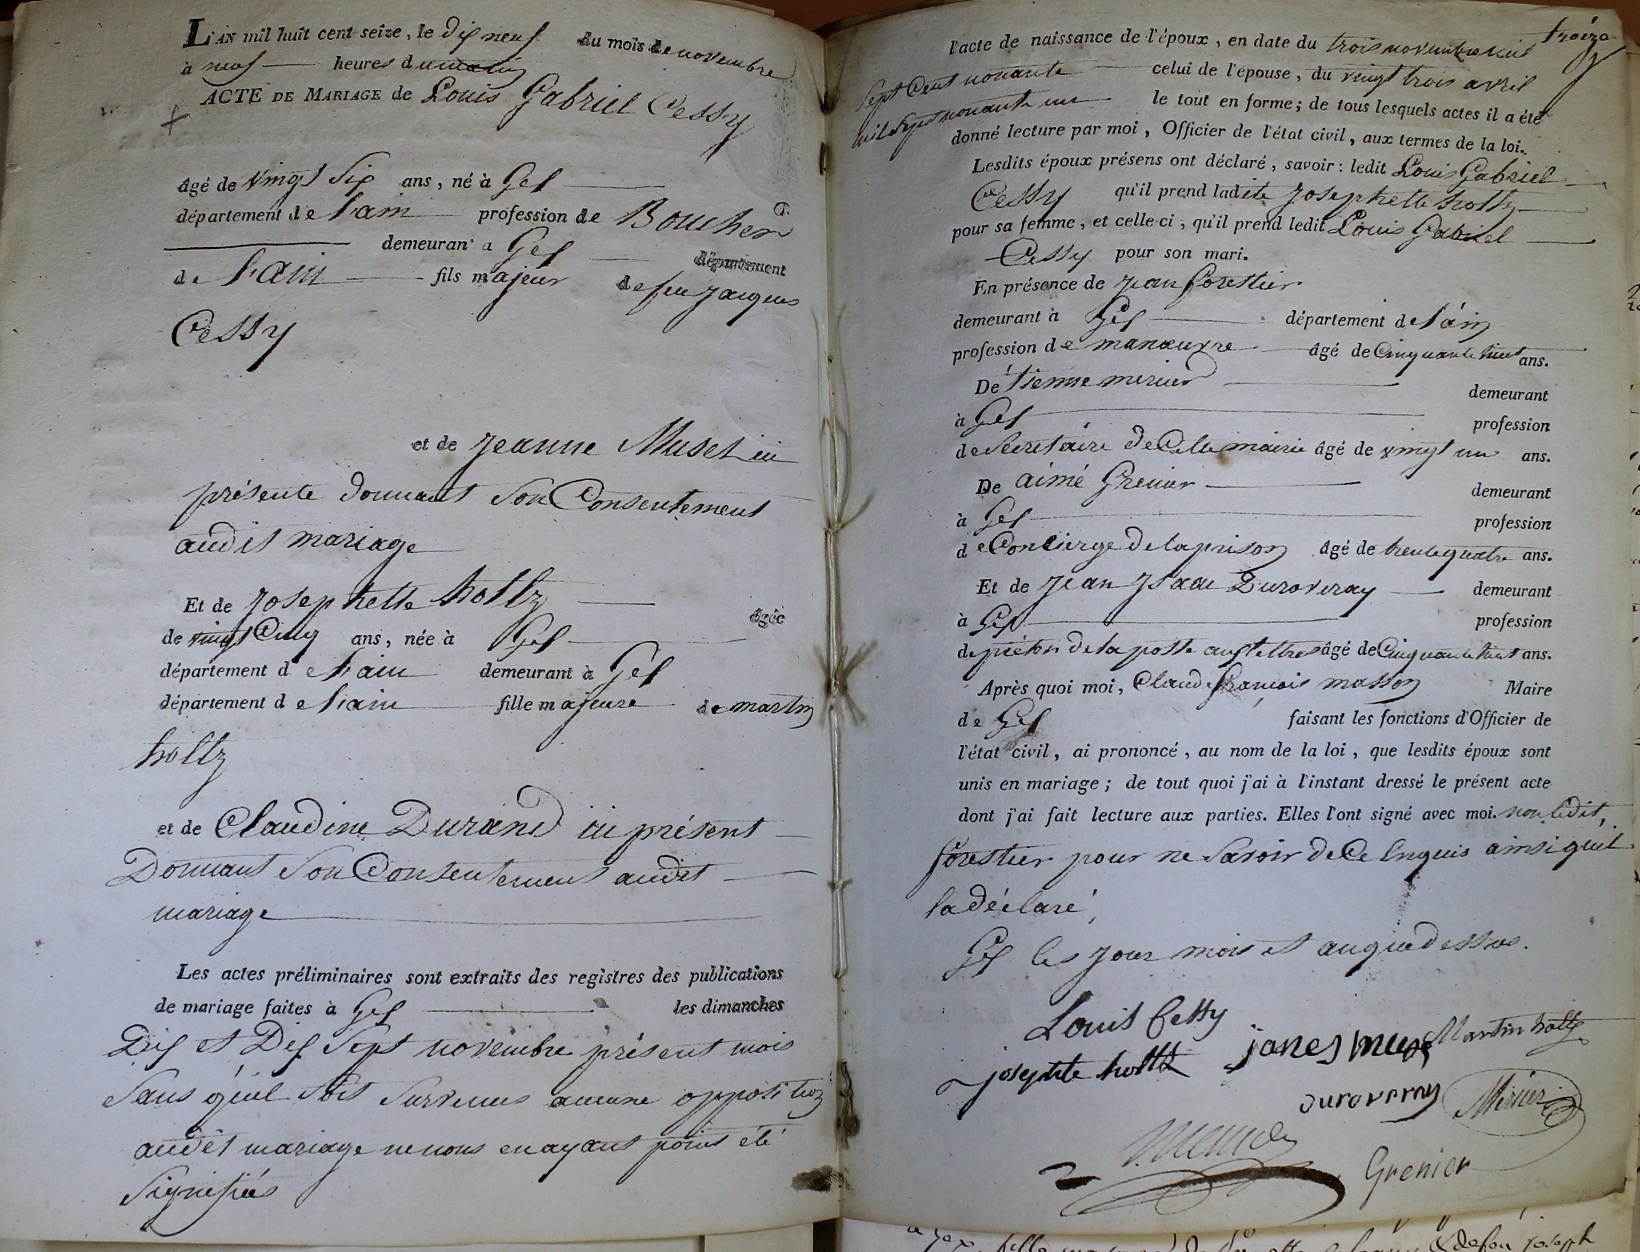 L'AN mil huit cent seize, le dix neuf du mois de novembre
à neuf heures du matin
ACTE DE MARIAGE de Louis Gabriel Cessy
âgé de vingt six ans, né à Gex
département de l'ain profession de Boucher
demeurant à Gex département
de l'ain fils majeur de feu jacques
Cessy
et de jeanne Muset ici
présente donnant son Consentement
audit mariage
Et de josephette holtz âgée
de vingt Cinq ans, née à Gex
département de l'ain demeurant à Gex
département de l'ain fille majeure de martin
holtz
et de Claudine Durand ici présent
Donnant son Consentement audit
mariage
Les actes préliminaires sont extraits des registres des publications
de mariage faites à Gex les dimanches
Dix et Dix sept novembre présent mois
sans qu'il soit survenus aucune opposition
audit mariage ne nous en ayant point été
signifiés
treize
l'acte de naissance de l'époux, en date du trois novembre mil
sept Cent nonante celui de l'épouse, du vingt trois avril
mil sept nonante un le tout en forme; de tous lesquels actes il a été
donné lecture par moi, Officier de l'état civil, aux termes de la loi.
Lesdits époux présens ont déclaré, savoir: ledit Louis Gabriel
Cessy qu'il prend ladite josephette holtz
pour sa femme, et celle-ci, qu'il prend ledit Louis Gabriel
Cessy pour son mari.
En présence de jean forestier
demeurant à Gex département de l'ain
profession de manœuvre âgé de Cinquante huit ans.
De étienne mercier demeurant
à Gex profession
de secretaire de Cette mairie âgé de vingt un ans.
De aimé Grenier demeurant
à Gex profession
de Concierge de la prison âgé de trente quatre ans.
Et de jean jsaac Duroveray demeurant
à Gex profession
de piéton de la poste aux lettres âgé de Cinquante huit ans.
Après quoi moi, Claude françois masson Maire
de Gex faisant les fonctions d'Officier de
l'état civil, ai prononcé, au nom de la loi, que lesdits époux sont
unis en mariage; de tout quoi j'ai à l'instant dressé le présent acte
dont j'ai fait lecture aux parties. Elles l'ont signé avec moi. non ledit,
forestier pour ne savoir de Ce Enquis ainsi quil
la déclaré,
Gex les jour mois et an que dessus.
Louis Cessy
josephte holtz janes muse Martin holtz
duroveray Mercier
Grenier